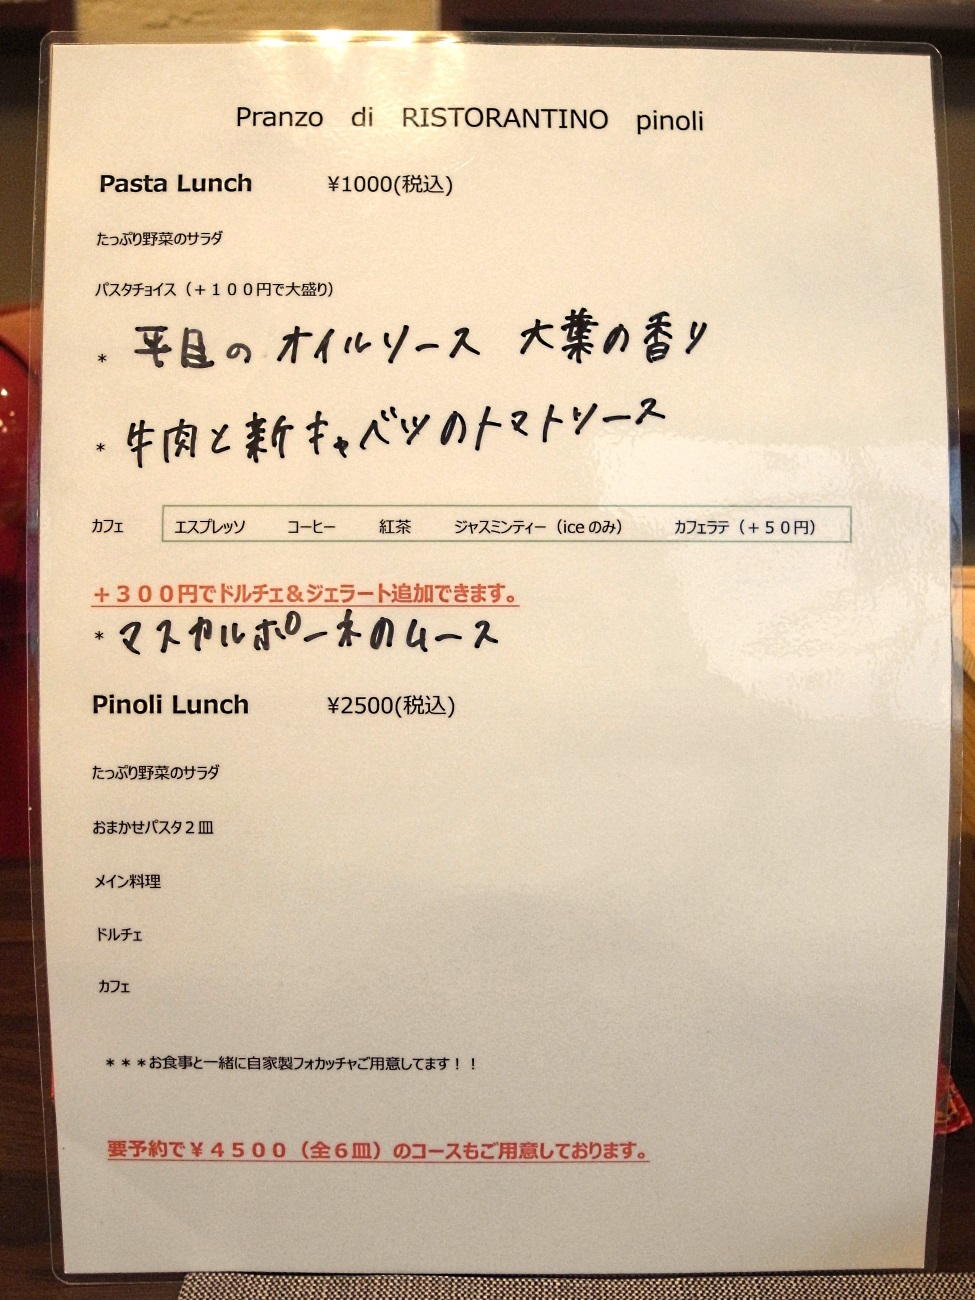 Pranzo di RISTORANTINO pinoli
Pasta Lunch ¥1000(税込)
たっぷり野菜のサラダ
パスタチョイス（＋１００円で大盛り）
* 平目のオイルソース 大葉の香り
* 牛肉と新キャベツのトマトソース
カフェ エスプレッソ コーヒー 紅茶 ジャスミンティー（iceのみ） カフェラテ（＋５０円）
＋３００円でドルチェ＆ジェラート追加できます。
* マスカルポーネのムース
Pinoli Lunch ¥2500(税込)
たっぷり野菜のサラダ
おまかせパスタ２皿
メイン料理
ドルチェ
カフェ
＊＊＊お食事と一緒に自家製フォカッチャご用意してます！！
要予約で￥４５００（全６皿）のコースもご用意しております。